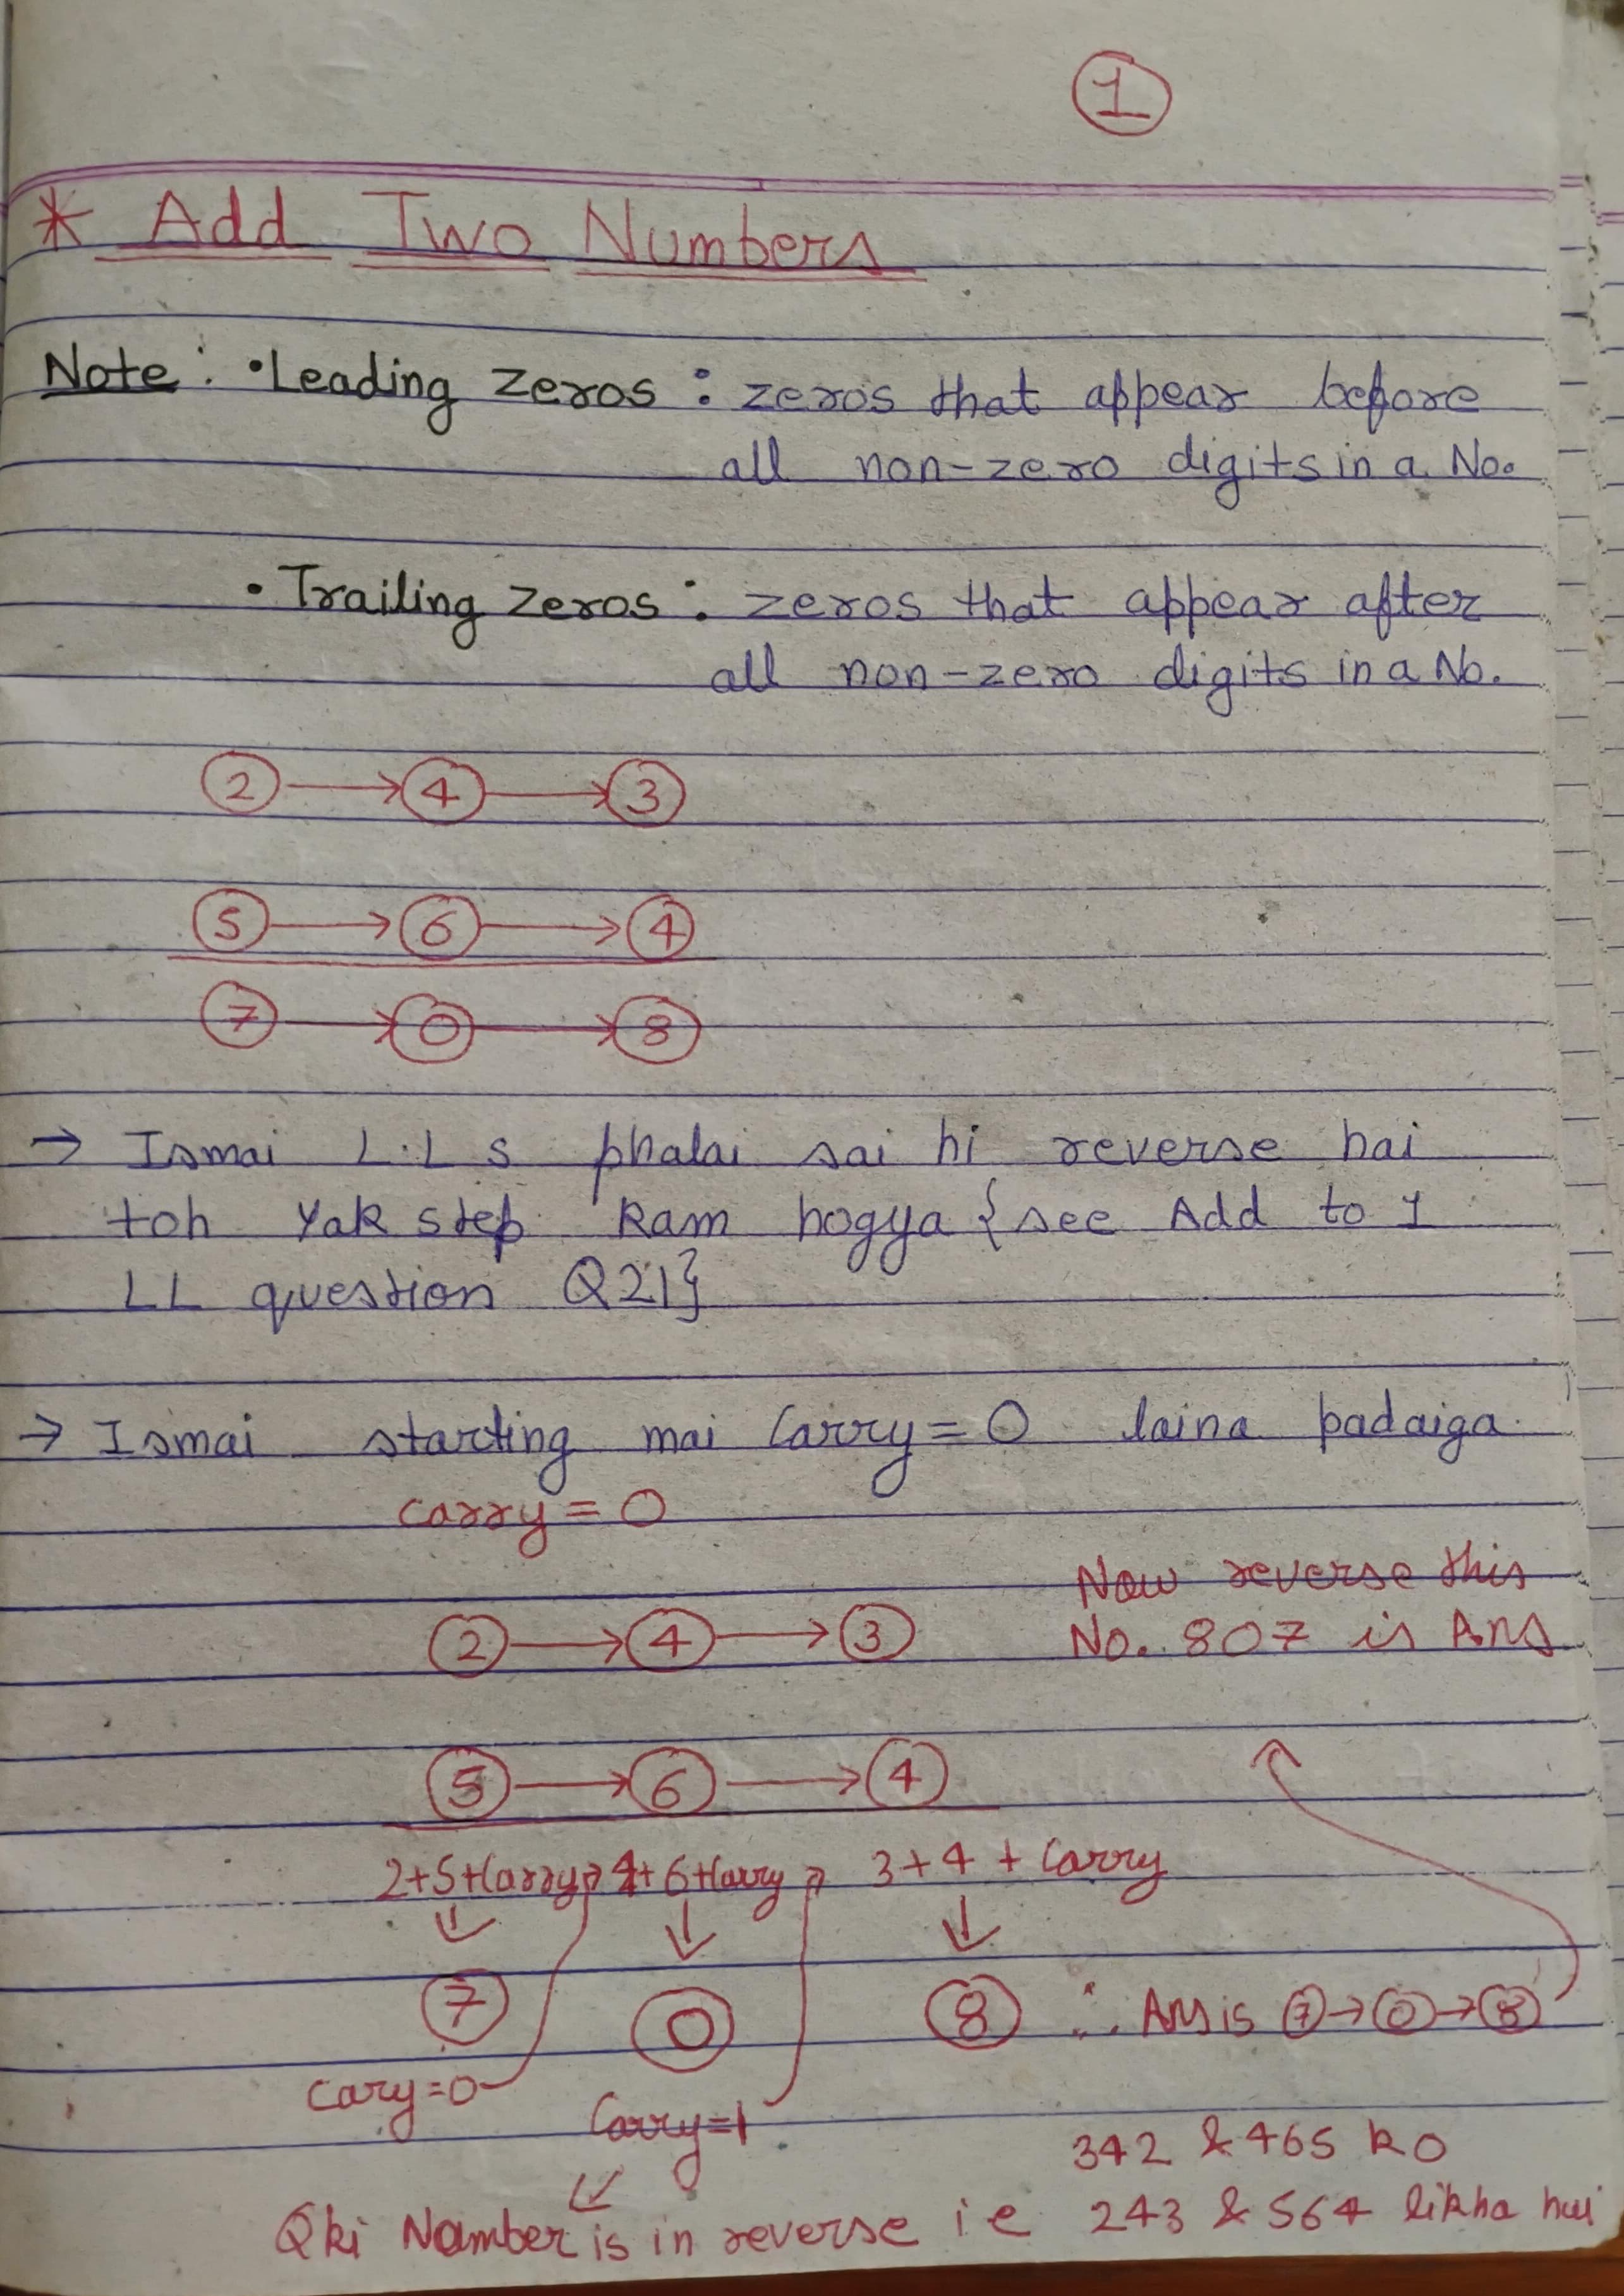 1
* Add Two Numbers
Note : • Leading zeros : zeros that appear before
all non-zero digits in a No.
• Trailing zeros : zeros that appear after
all non-zero digits in a No.
2 → 4 → 3
5 → 6 → 4
7 → 0 → 8
→ Ismai L.L s phalai sai hi reverse hai
toh Yak step kam hogya {see Add to 1
LL question Q21}
→ Ismai starting mai Carry = 0 laina padaiga
carry = 0
Now reverse this
2 → 4 → 3 No. 807 is Ans
5 → 6 → 4
2+5+Carry 4+6+Carry 3+4+Carry
7 0 8 ∴ Ans is 7 → 0 → 8
cary=0
Carry=1
342 & 465 ko
Qki Number is in reverse i e 243 & 564 likha hai